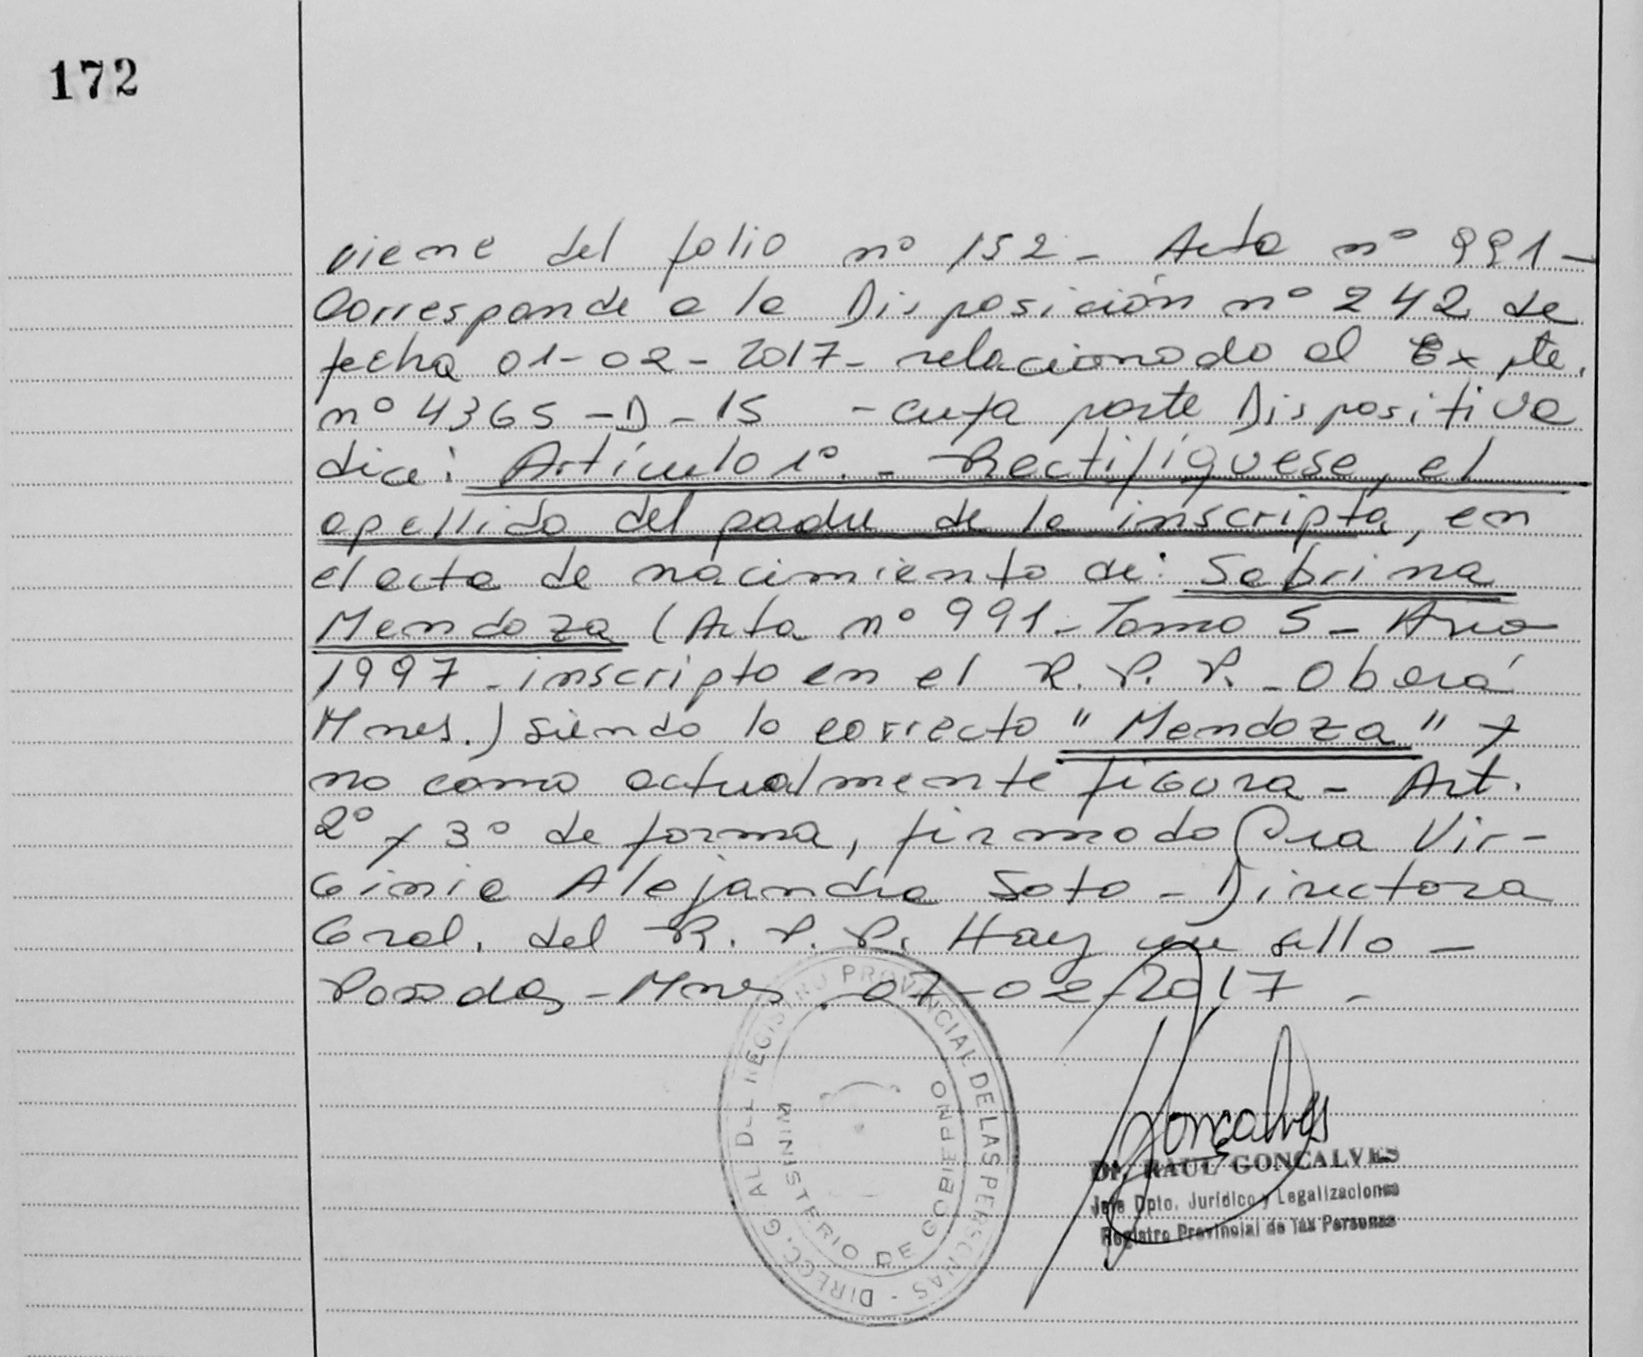 172
viene del folio nº 152 - Acta nº 991 -
Corresponde a la Disposición nº 242 de
fecha 01-02-2017- relacionado al Expte.
nº 4365 - D - 15 - cuya parte Dispositiva
dice: Artículo 1º. - Rectifíquese, el
apellido del padre de la inscripta, en
el acta de nacimiento de: Sabrina
Mendoza (Acta nº 991 - Tomo 5 - Año
1997 - inscripto en el R. P. P. - Oberá
Mnes.) siendo lo correcto "Mendoza" y
no como actualmente figura - Art.
2º y 3º de forma, firmado Dra Vir-
ginia Alejandra Soto - Directora
Gral. del R. P. P. Hay un sello -
Posadas - Mnes 07-02-2017 -
DIRECC. GRAL DEL REGISTRO PROVINCIAL DE LAS PERSONAS -
MINISTERIO DE GOBIERNO
Goncalves
Dr. RAUL GONCALVES
Jefe Dpto. Jurídico y Legalizaciones
Registro Provincial de las Personas